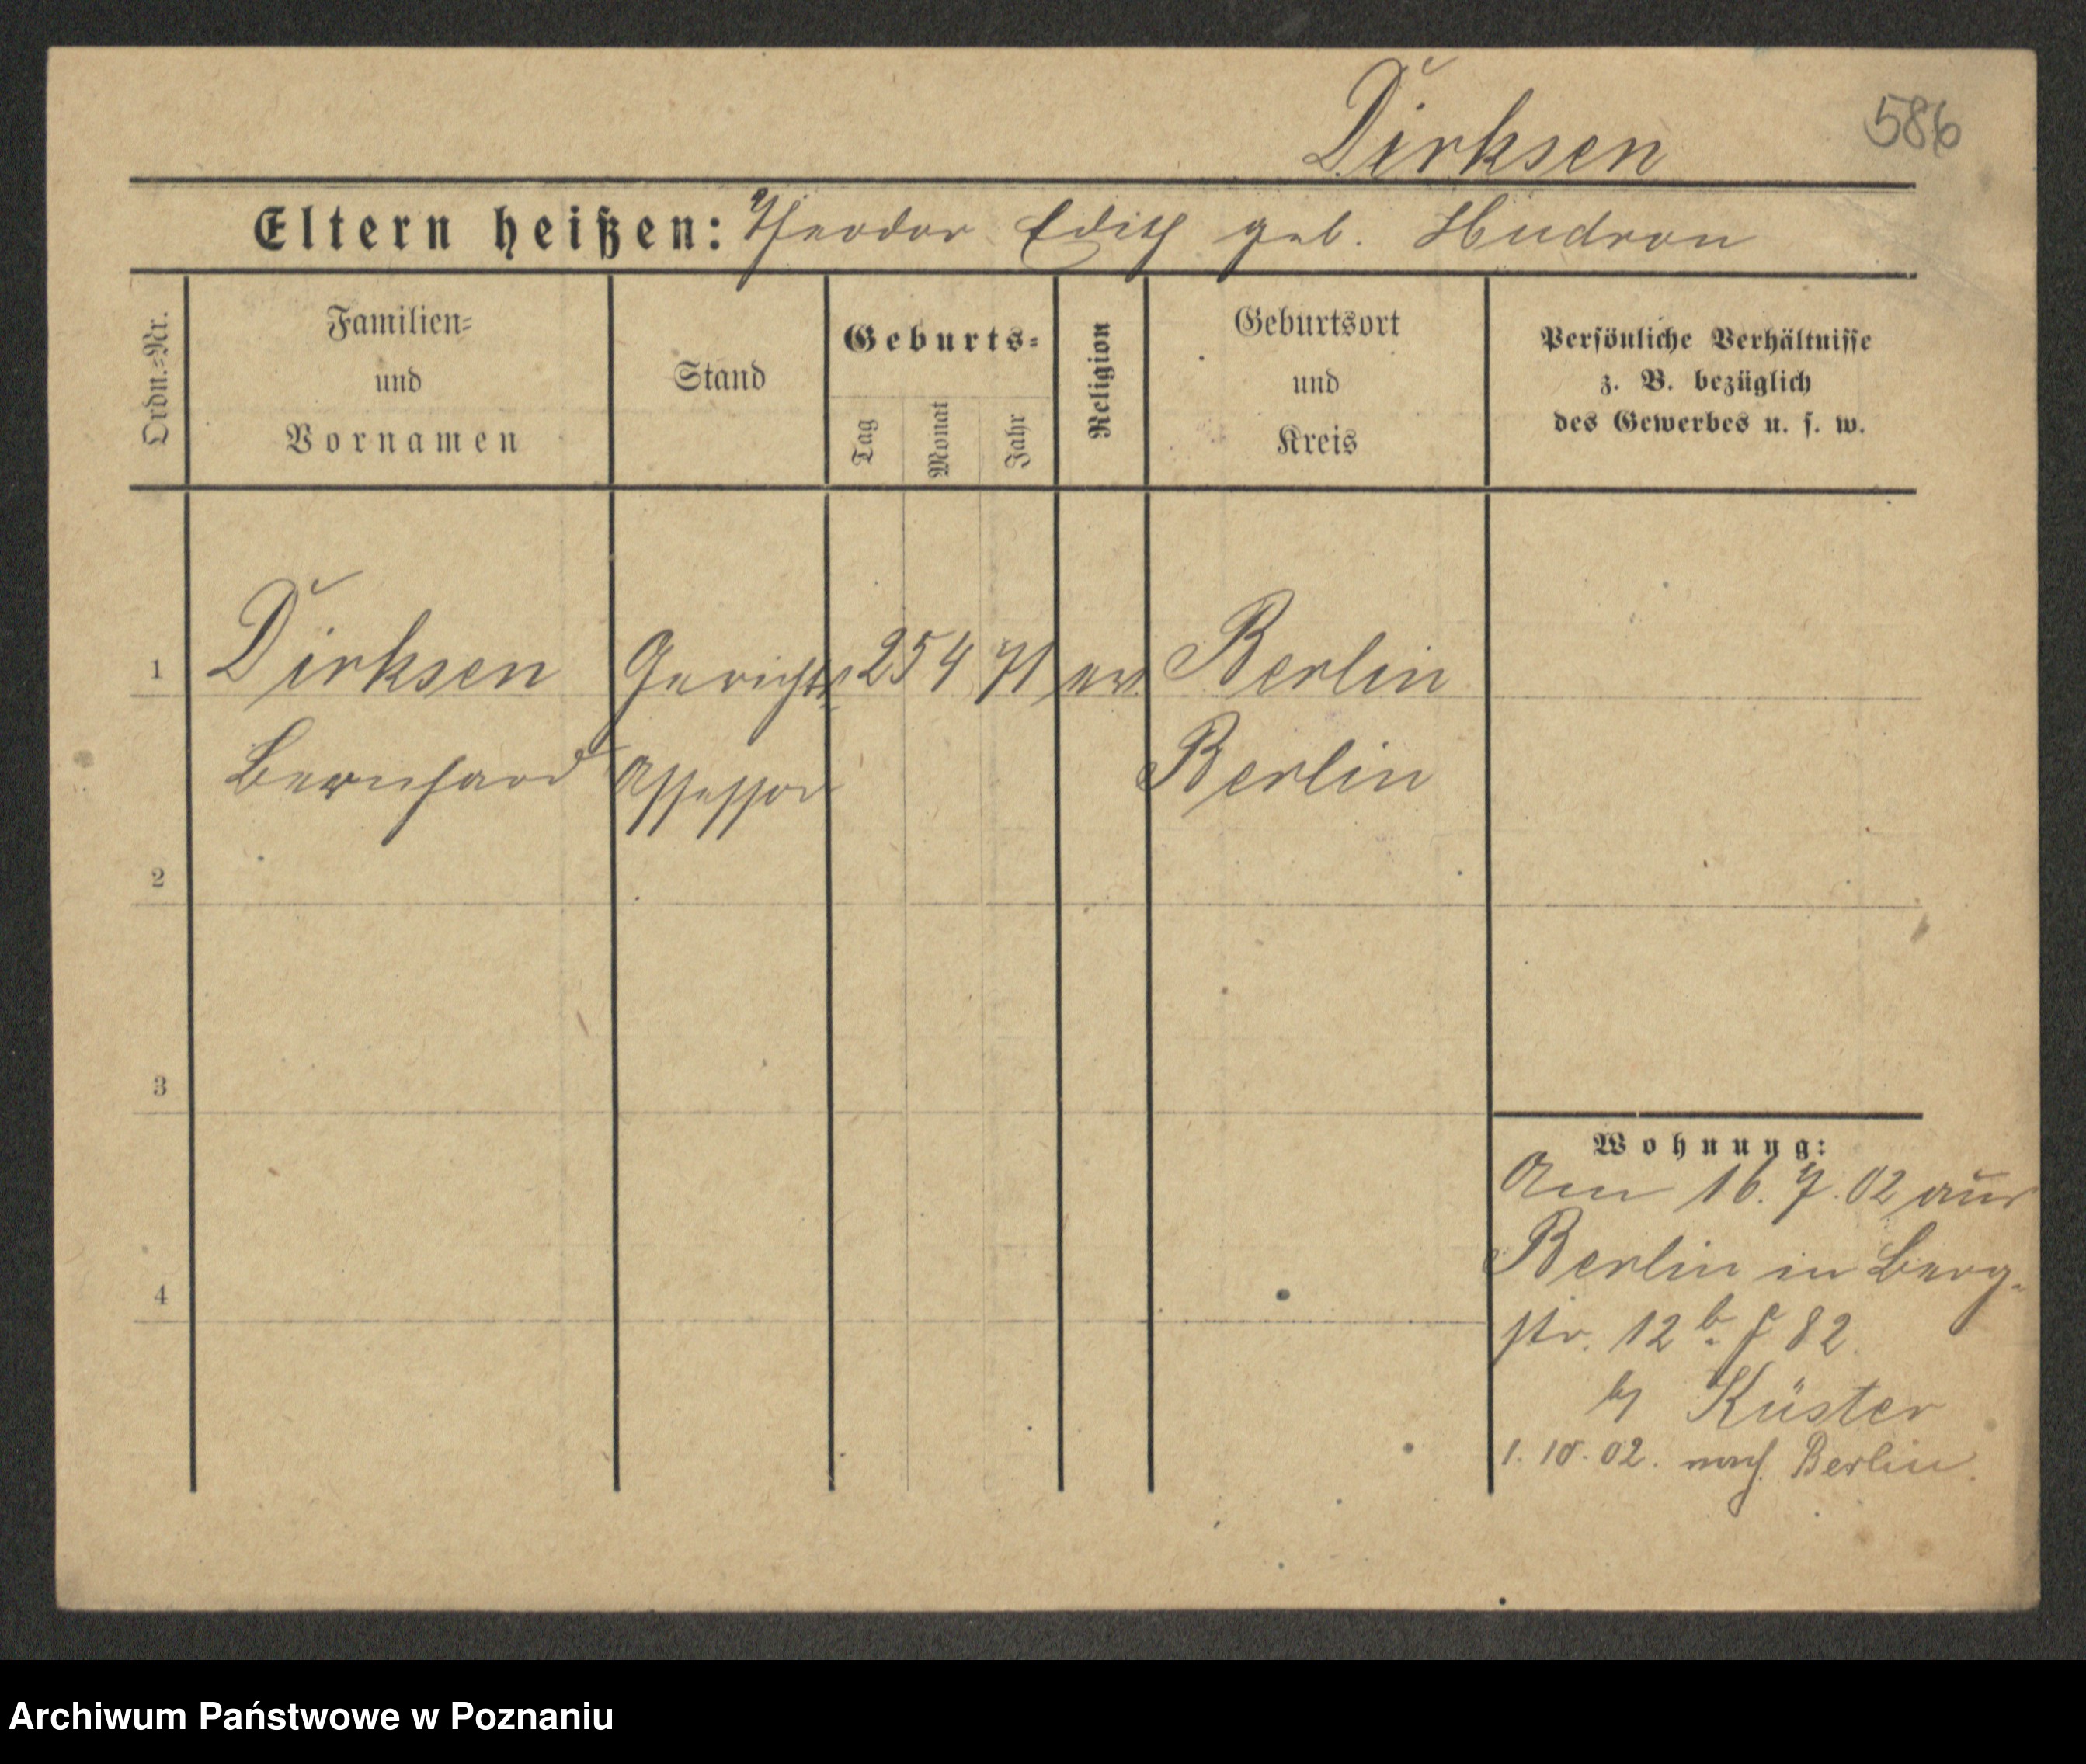 Dirksen
586
Eltern heißen: Theodor Edith geb. Hudson
Ordn.=Nr.
Familien=
und
Vornamen
Stand
Geburts=
Tag
Monat
Jahr
Religion
Geburtsort
und
Kreis
Persönliche Verhältnisse
z. B. bezüglich
des Gewerbes u. s. w.
1 Dirksen Gerichts 25 4 71 ev. Berlin
Bernhard Assessor Berlin
2
3
4
Wohnung:
Am 16. 7. 02 aus
Berlin in Berg-
str. 12 b. 82.
b/ Küster
1. 10. 02. nach Berlin.
Archiwum Państwowe w Poznaniu